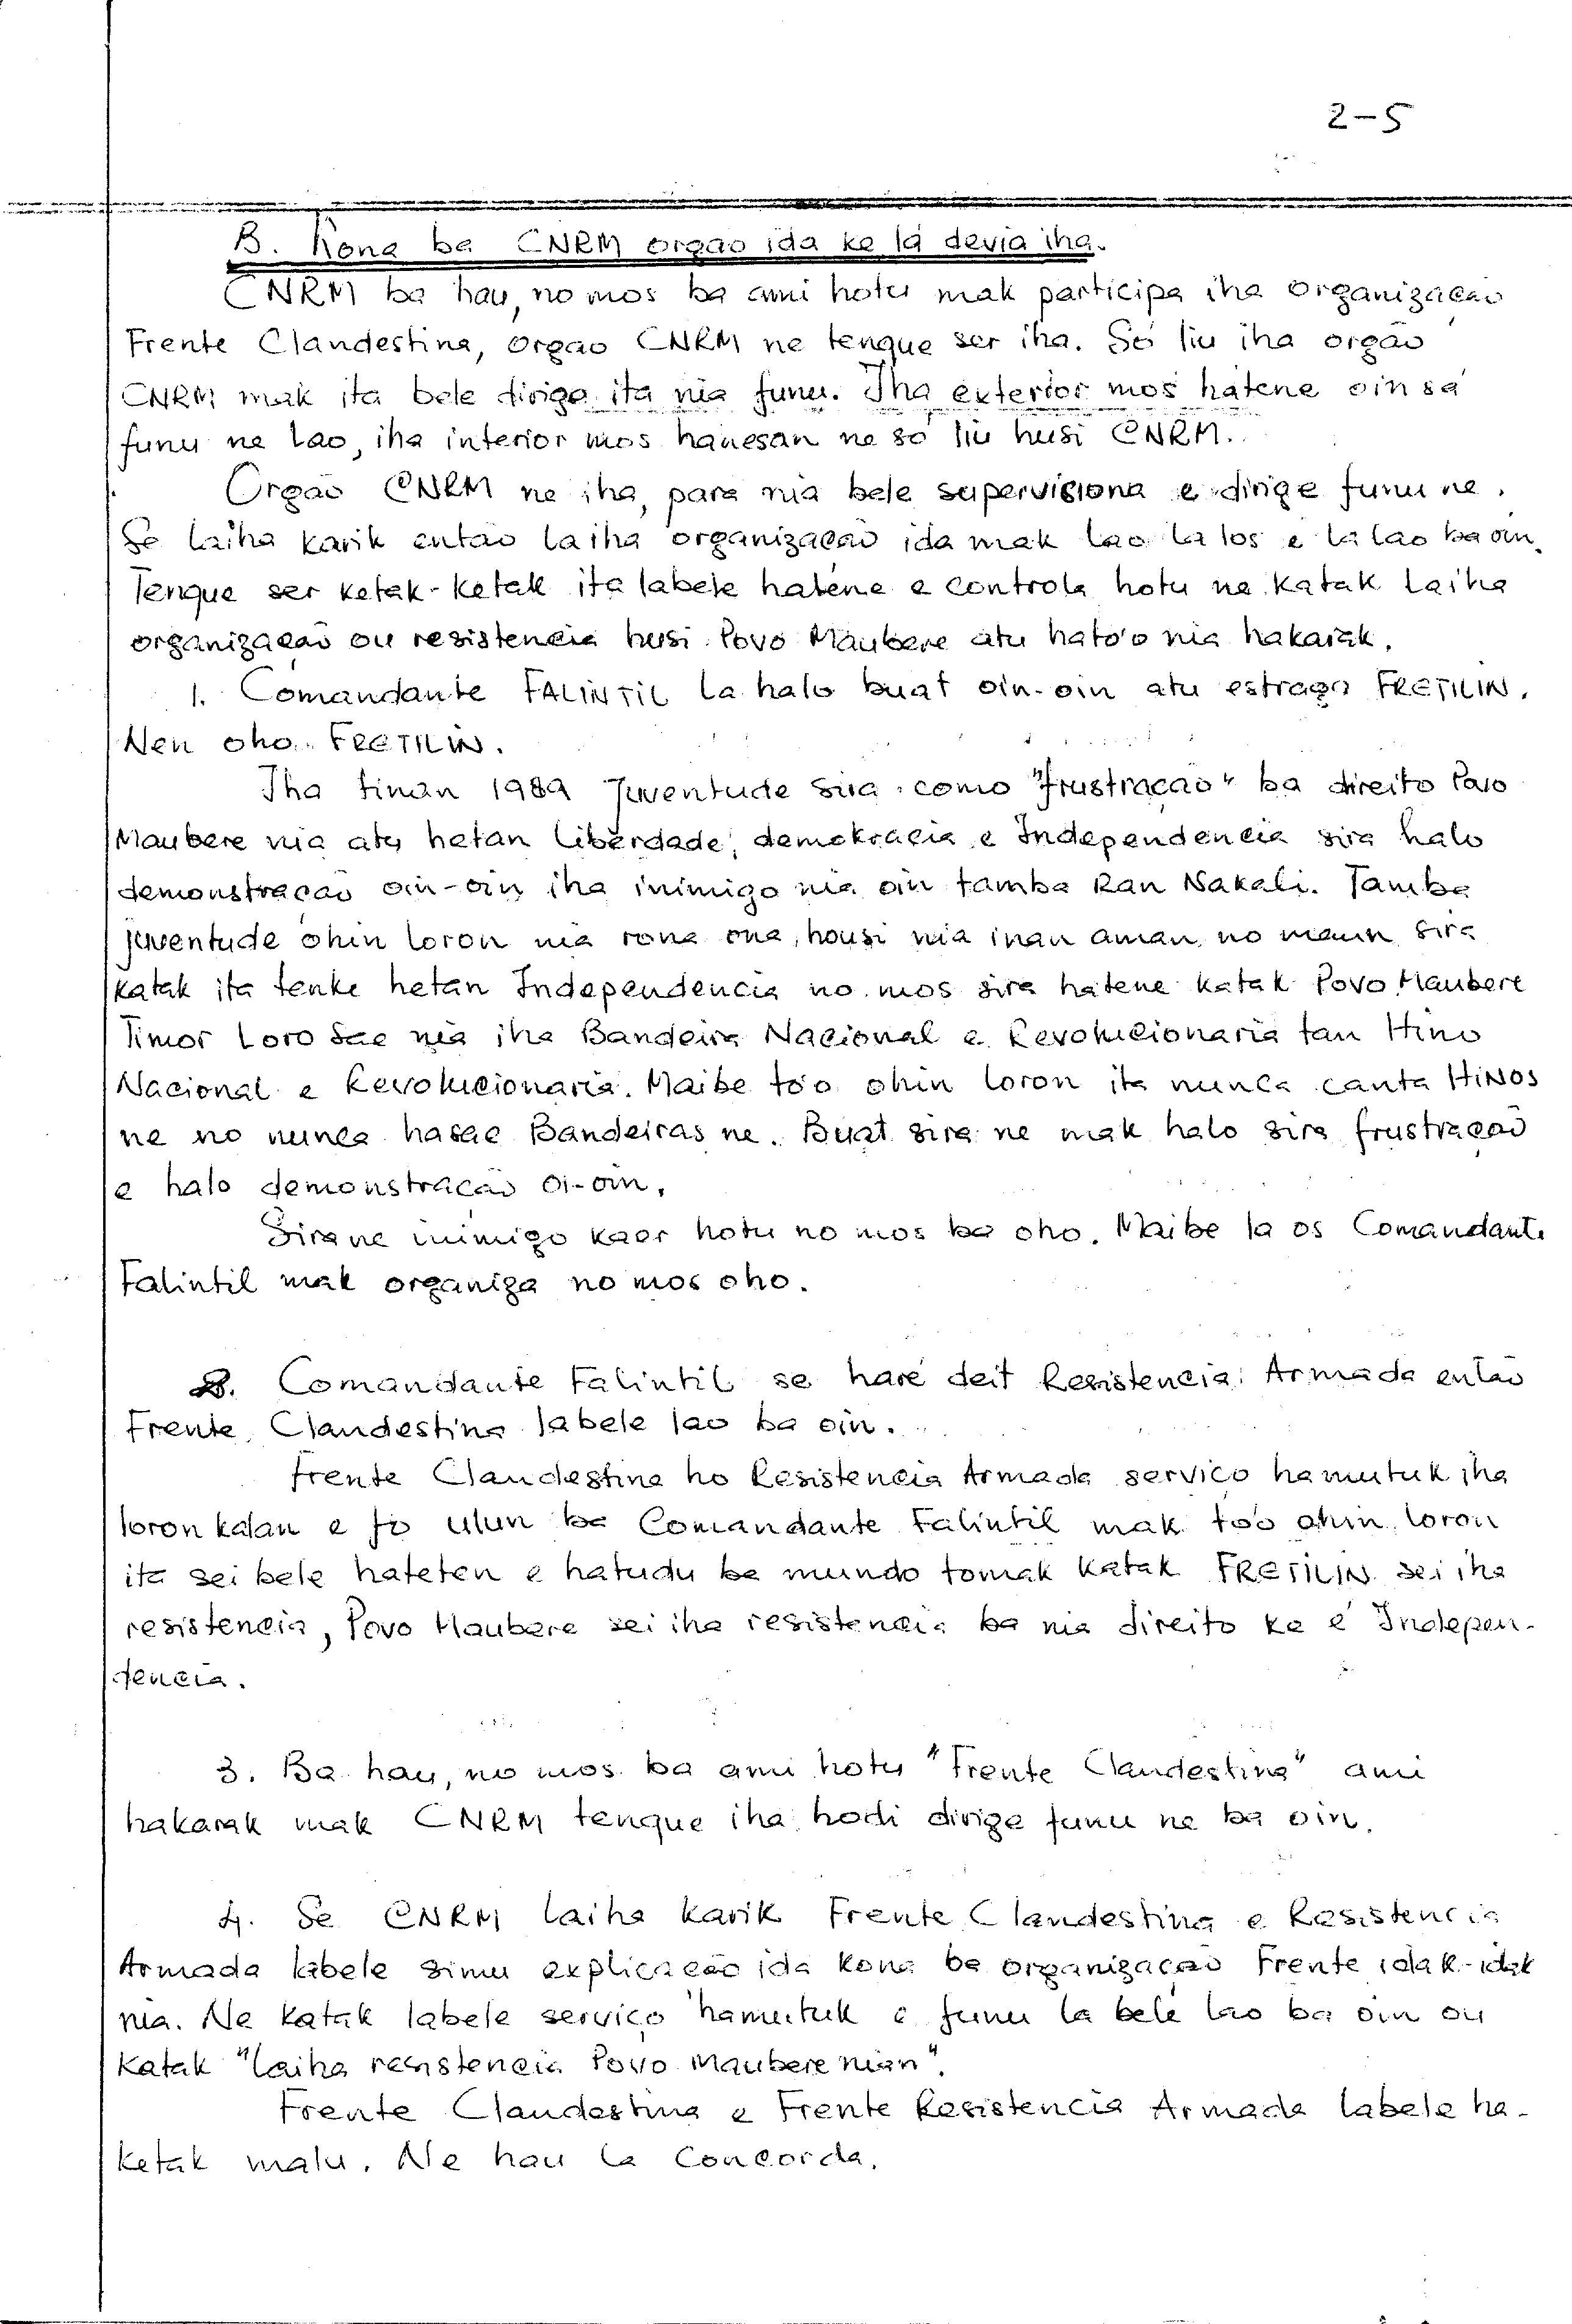 2-5
B. Kona ba CNRM orgao ida ke la devia iha.
CNRM ba hau, no mos ba ami hotu mak participa iha organizacao
Frente Clandestina, orgao CNRM ne tenque ser iha. Só liu iha orgão
CNRM mak ita bele dirige ita nia funu. Iha exterior mos hatene oin sá
funu ne lao, iha interior mos hanesan ne só liu husi CNRM.
Orgaõ CNRM ne iha, para nia bele supervisiona e dirige funu ne.
Se laiha karik entaõ laiha organizacaõ ida mak lao la los e la lao ba oin.
Tenque ser ketak-ketak ita labele hatene e controla hotu ne katak laiha
organizacaõ ou resistencia husi Povo Maubere atu hato'o nia hakarak.
1. Comandante FALINTIL la halo buat oin-oin atu estraga FRETILIN.
Nen oho FRETILIN.
Iha tinan 1989 Juventude sira como "frustracaõ" ba direito Povo
Maubere nia atu hetan liberdade, demokracia e Independencia sira halo
demonstracaõ oin-oin iha inimigo nia oin tamba Ran Nakali. Tamba
juventude ohin loron nia rona ona, housi nia inan aman no maun sira
katak ita tenke hetan Independencia no mos sira hatene katak Povo Maubere
Timor Loro Sae nia iha Bandeira Nacional e Revolucionaria tan Hino
Nacional e Revolucionaria. Maibe to'o ohin loron ita nunca canta HiNOS
ne no nunca hasae Bandeiras ne. Buat sira ne mak halo sira frustracaõ
e halo demonstracaõ oi-oin.
Sira ne inimigo kaer hotu no mos ba oho. Maibe la os Comandante
Falintil mak organiza no mos oho.
2. Comandante Falintil se haré deit Resistencia Armada entaõ
Frente Clandestina labele lao ba oin.
Frente Clandestina ho Resistencia Armada servico hamutuk iha
loron kalan e fo ulun ba Comandante Falintil mak to'o ohin loron
ita sei bele hateten e hatudu ba mundo tomak katak FRETILIN sei iha
resistencia, Povo Maubere sei iha resistencia ba nia direito ke é Indepen-
dencia.
3. Ba hau, no mos ba ami hotu "Frente Clandestina" ami
hakarak mak CNRM tenque iha hodi dirige funu ne ba oin.
4. Se CNRM laiha karik Frente Clandestina e Resistencia
Armada labele simu explicacaõ ida kona ba organizacaõ Frente idak-idak
nia. Ne katak labele servico hamutuk e funu la bele lao ba oin ou
katak "laiha resistencia Povo Maubere nian".
Frente Clandestina e Frente Resistencia Armada labele ha-
ketak malu. Ne hau la concorda.